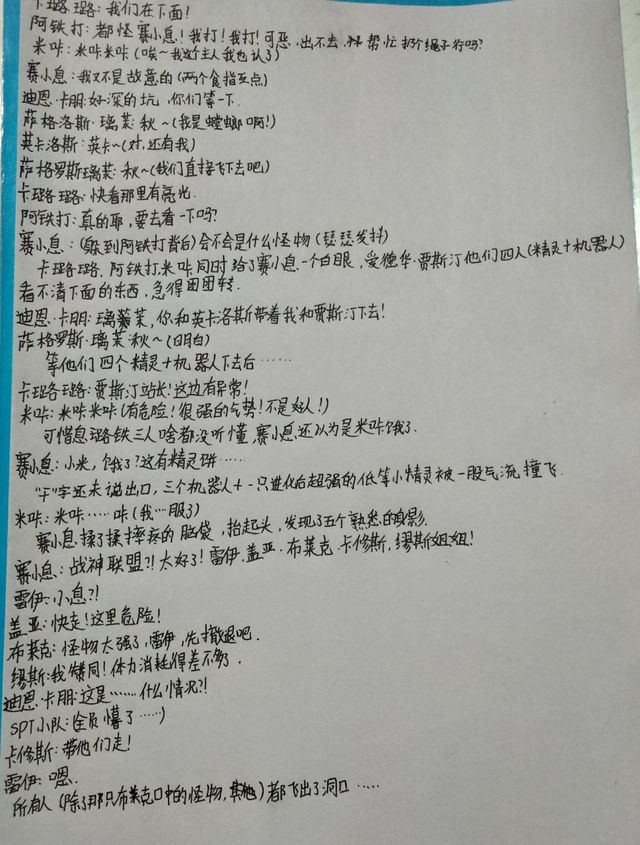 卡璐璐:我们在下面!
阿铁打:都怪赛小息!我打!我打!可恶,出不去,帮忙扔个绳子行吗?
米咔:米咔米咔(唉~我这个主人我也认了)
赛小息:我又不是故意的(两个食指互点)
迪恩·卡朋:好深的坑,你们等一下.
萨格洛斯·璃茉:秋~(我是螳螂啊!)
英卡洛斯:英卡~(对,还有我)
萨格罗斯璃茉:秋~(我们直接飞下去吧)
卡璐璐:快看那里有亮光.
阿铁打:真的耶,要去看一下吗?
赛小息:(躲到阿铁打背白)会不会是什么怪物(瑟瑟发抖)
卡璐璐,阿铁打.米咔同时给了赛小息一个白眼,爱德华·贾斯汀他们四人(精灵+机器人)
看不清下面的东西,急得团团转.
迪恩·卡朋:璃茉,你和英卡洛斯带着我和贾斯汀下去!
萨格罗斯·璃茉:秋~(明白)
等他们四个精灵+机器人下去后……
卡璐璐:贾斯汀站长!这边有异常!
米咔:米咔米咔(有危险!很强的气势!不是好人!)
可惜息璐铁三人啥都没听懂,赛小息还以为是米咔饿了.
赛小息:小米,饿了?这有精灵饼……
"干"字还未说出口,三个机器人+一只进化后超强的低等小精灵被一股气流撞飞.
米咔:米咔……咔(我…服了)
赛小息揉了揉摔疼的脑袋,抬起头,发现了五个熟悉的身影.
赛小息:战神联盟?!太好了!雷伊.盖亚.布莱克.卡修斯,缪斯姐姐!
雷伊:小息?!
盖亚:快走!这里危险!
布莱克:怪物太强了,雷伊,先撤退吧.
缪斯:我赞同!体力消耗得差不多了.
迪恩·卡朋:这是……什么情况?!
SPT小队:(全员懵了……)
卡修斯:带他们走!
雷伊:嗯.
所有人(除了那只布莱克口中的怪物,其他)都飞出了洞口……